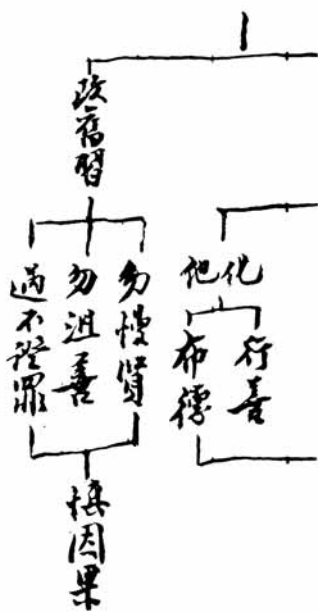 化他
行善
布德
改舊習
勿慢賢
勿沮善
過不罪
慎因果